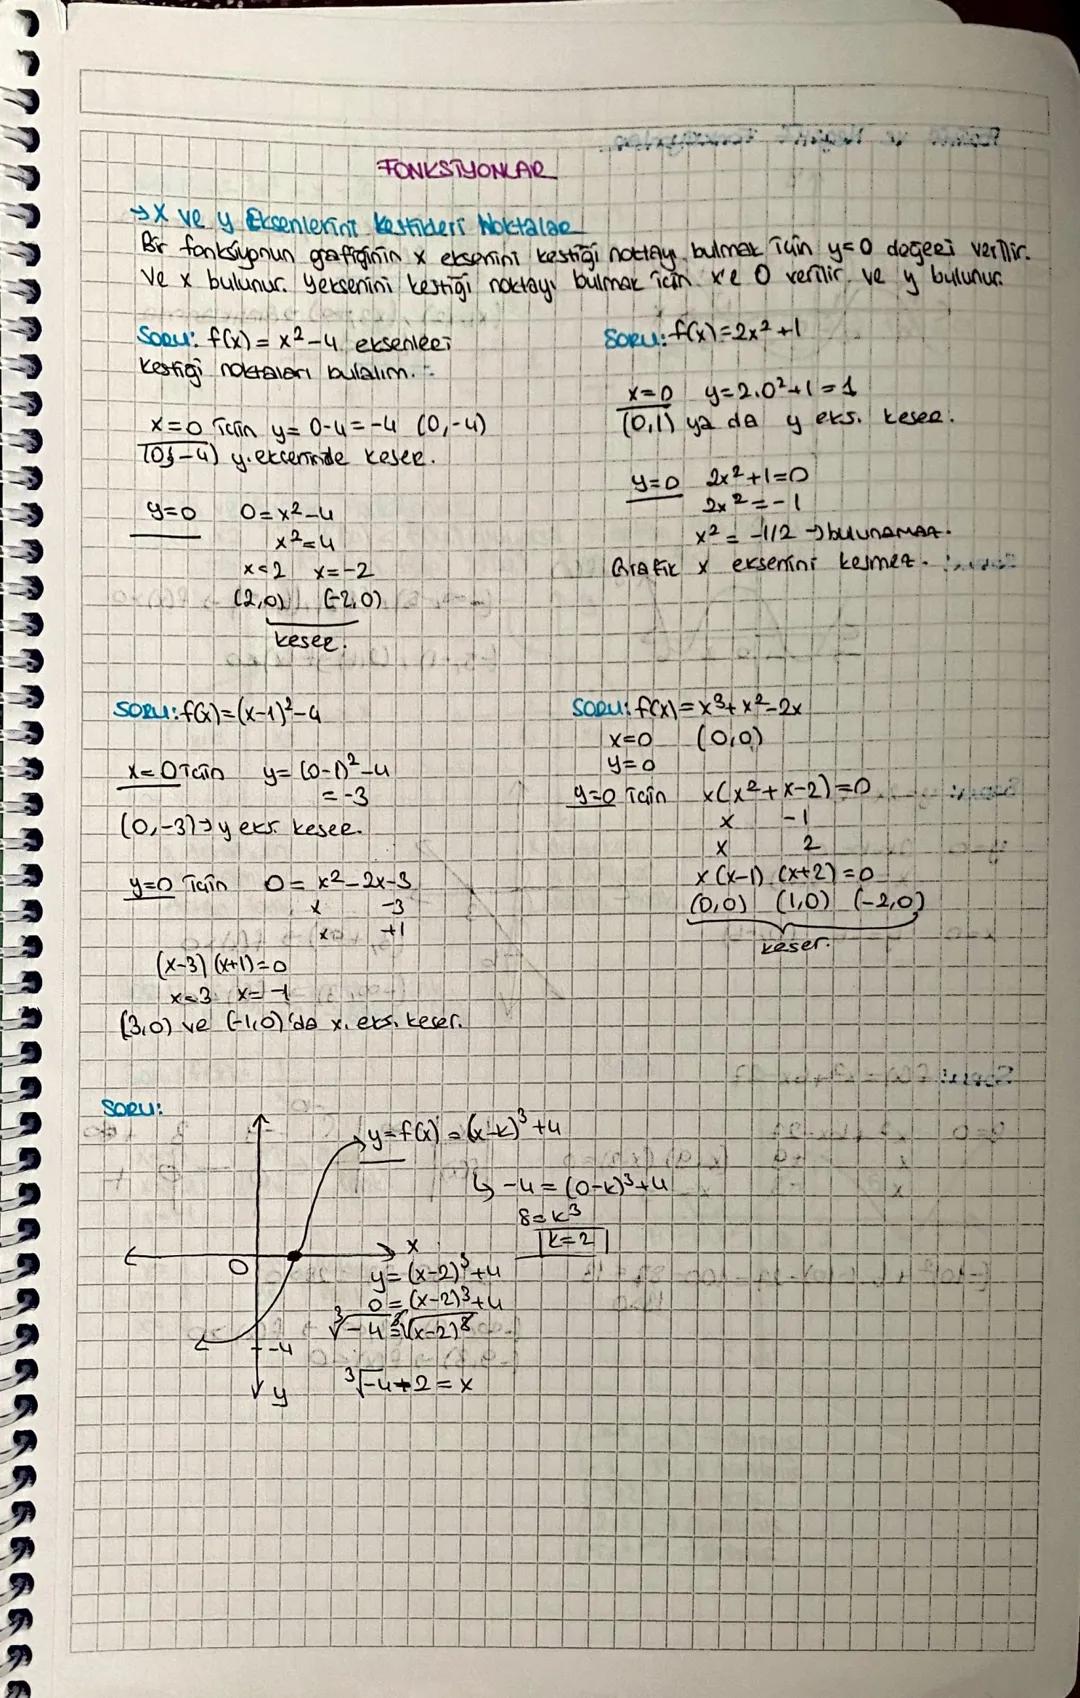 FONKSİYONLAR
→ X ve y Eksenlerini Kestikleri Noktalar
Bir fonksiyonun grafiğinin x eksenini kestiği noktayı bulmak için y=0 değeri verilir.
Ve x bulunur. y eksenini kestiği noktayı bulmak için x'e 0 verilir ve y bulunur.
SORU: f(x) = x²-4 eksenleri
kestiği noktaları bulalım.
x=0 için y= 0-4=-4 (0,-4)
(0,-4) y. ekseninde keser.
y=0 0=x²-4
x²=4
x=2 x=-2
(2,0) (-2,0)
keser.
SORU: f(x)=2x²+1
x=0 y=2.0²+1=1
(0,1) ya da y eks. keser.
y=0 2x²+1=0
2x²=-1
x²= -1/2 → bulunamaz.
Grafik x eksenini kesmez.
SORU: f(x)=(x-1)²-4
x=0 için y= (0-1)²-4
= -3
(0,-3)→ y eks. keser.
y=0 için 0= x²-2x-3
x -3
x +1
(x-3) (x+1)=0
x=3 x=-1
(3,0) ve (-1,0)'da x. eks. keser.
SORU: f(x)=x³+x²-2x
x=0 (0,0)
y=0
y=0 için x(x²+x-2)=0
x -1
x 2
x(x-1) (x+2)=0
(0,0) (1,0) (-2,0)
keser.
SORU:
y=f(x) = (x-k)³+4
↳ -4 = (0-k)³+4
8=k³
k=2
x
0
y= (x-2)³+4
0= (x-2)³+4
³√-4 = ³√(x-2)³
-4
³√-4+2 = x
y